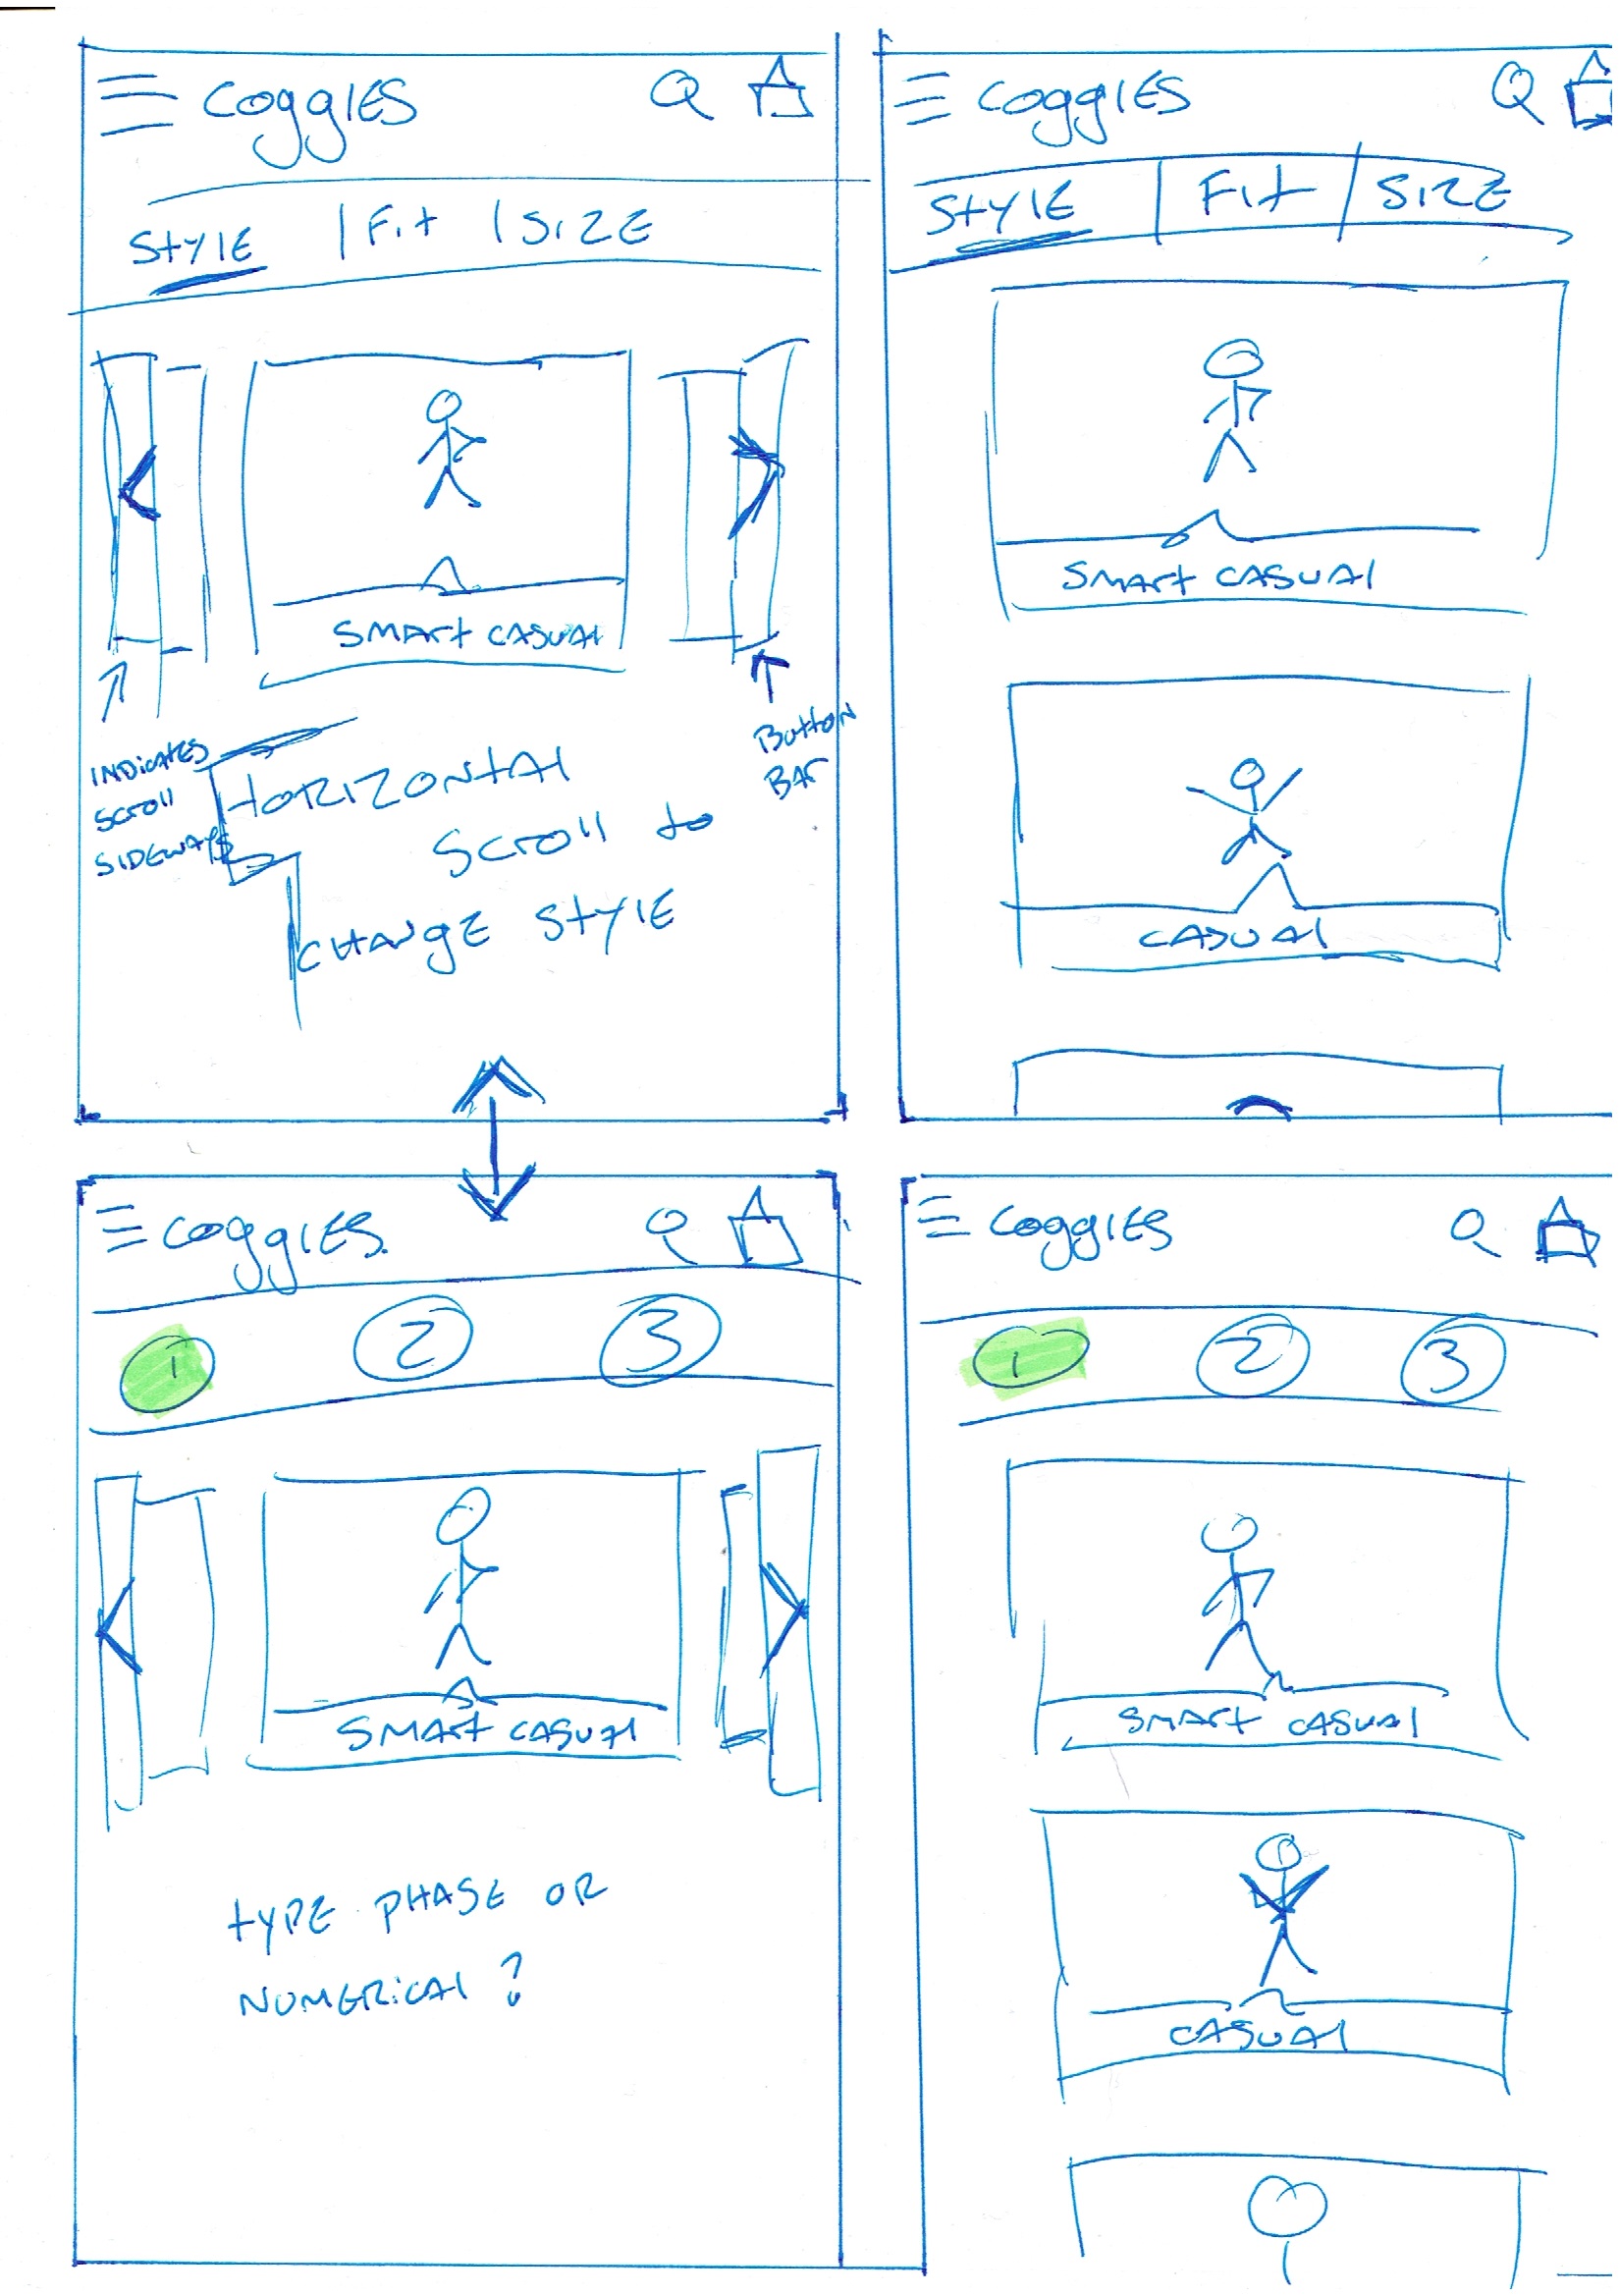 COGGIES
STYLE | Fit | SIZE
SMARt CASUAL
INDICATES
SCROLL
SIDEWAYS
HORIZONTAL
SCROLL to
CHANGE STYLE
BUTTON
BAR
COGGIES
STYLE | Fit | SIZE
SMARt CASUAL
CASUAL
COGGIES.
1 2 3
SMARt CASUAL
tYPE PHASE OR
NUMERICAL ?
COGGIES
1 2 3
SMARt CASUAL
CASUAL